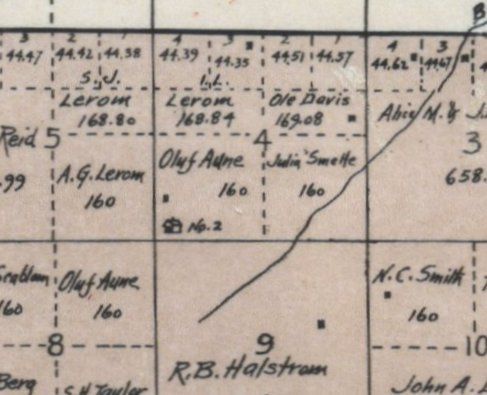 B
3 2 1 4 3 2 1 4 3
44.47 44.42 44.38 44.39 44.35 44.51 44.57 44.62 44.67
S.J. I.L.
Lerom Lerom Ole Davis Alice M. &
168.80 168.84 169.08
Reid 5 4 3
.99 A.G. Lerom Oluf Aune Julia Smette 658.
160 160 160
No.2
Oluf Aune N.C. Smith
160 160 160
8 9 10
R.B. Halstrom
Berg S.H. Taylor John A.